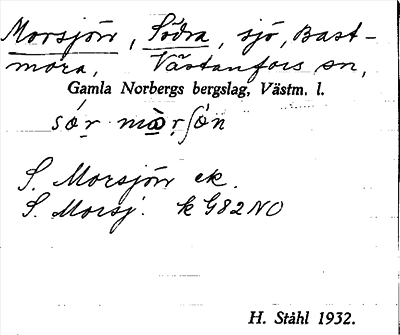 Morsjön, Södra, sjö, Bast-
mora, Västanfors sn,
Gamla Norbergs bergslag, Västm. l.
S. Morsjön ek.
S. Morsj. k G82NO
H. Ståhl 1932.